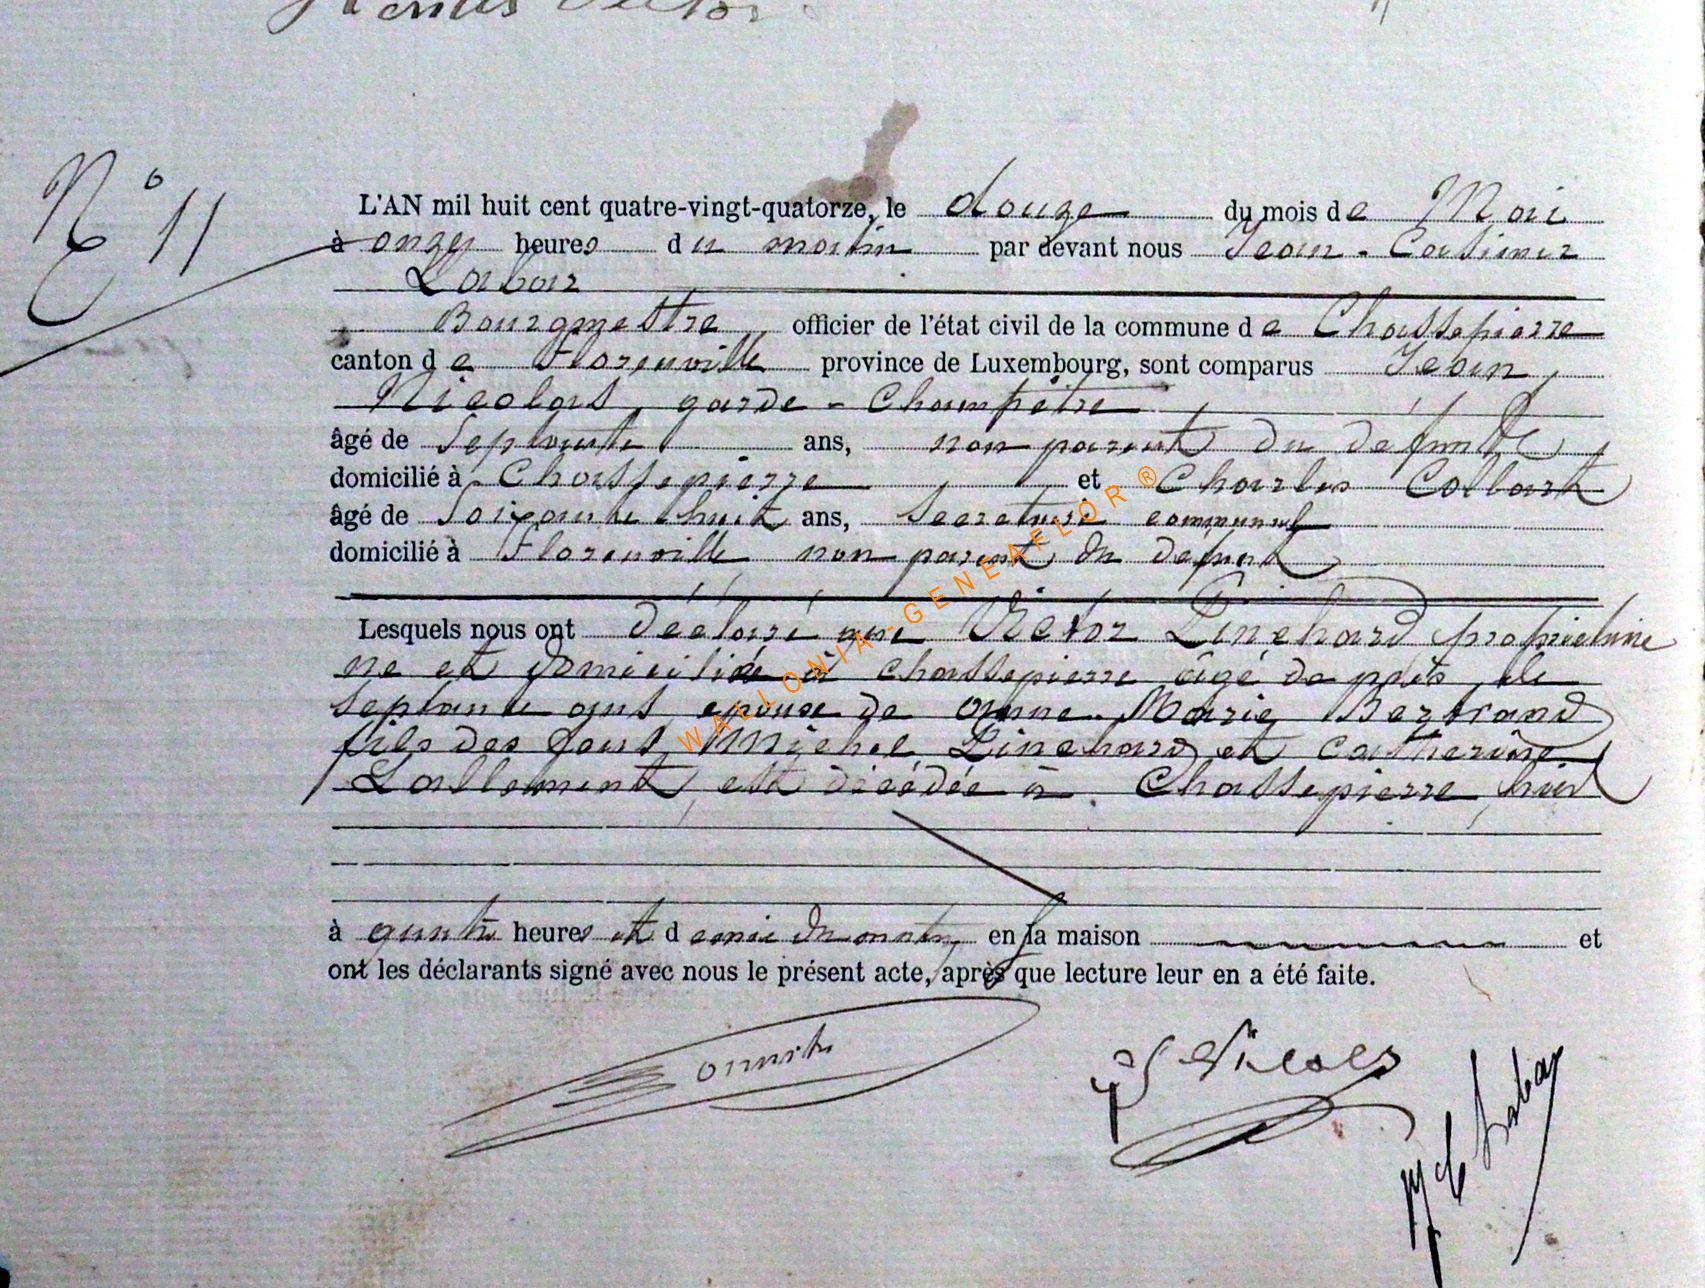 Victor
N° 11
L'AN mil huit cent quatre-vingt-quatorze, le douze du mois de Mai
à onze heures du matin par devant nous Jean-Casimir
Labar
Bourgmestre officier de l'état civil de la commune de Chassepierre
canton de Florenville province de Luxembourg, sont comparus Jean,
Nicolas, garde-Champêtre
âgé de Septante ans, non parent du défunt
domicilié à Chassepierre et Charles Collart
âgé de Soixante huit ans, Secretaire communal
domicilié à Florenville non parent du défunt
Lesquels nous ont déclaré que Victor Linchard propriétaire
né et domicilié à Chassepierre âgé de près de
septante ans, epoux de Anne-Marie Bertrand
fils des Michel Linchard et Catherine
Lallement, est décédée à Chassepierre, hier
à heures et demie du matin en sa maison et
ont les déclarants signé avec nous le présent acte, après que lecture leur en a été faite.
J Nicolas
WALLONIA-GENEAFLOR®